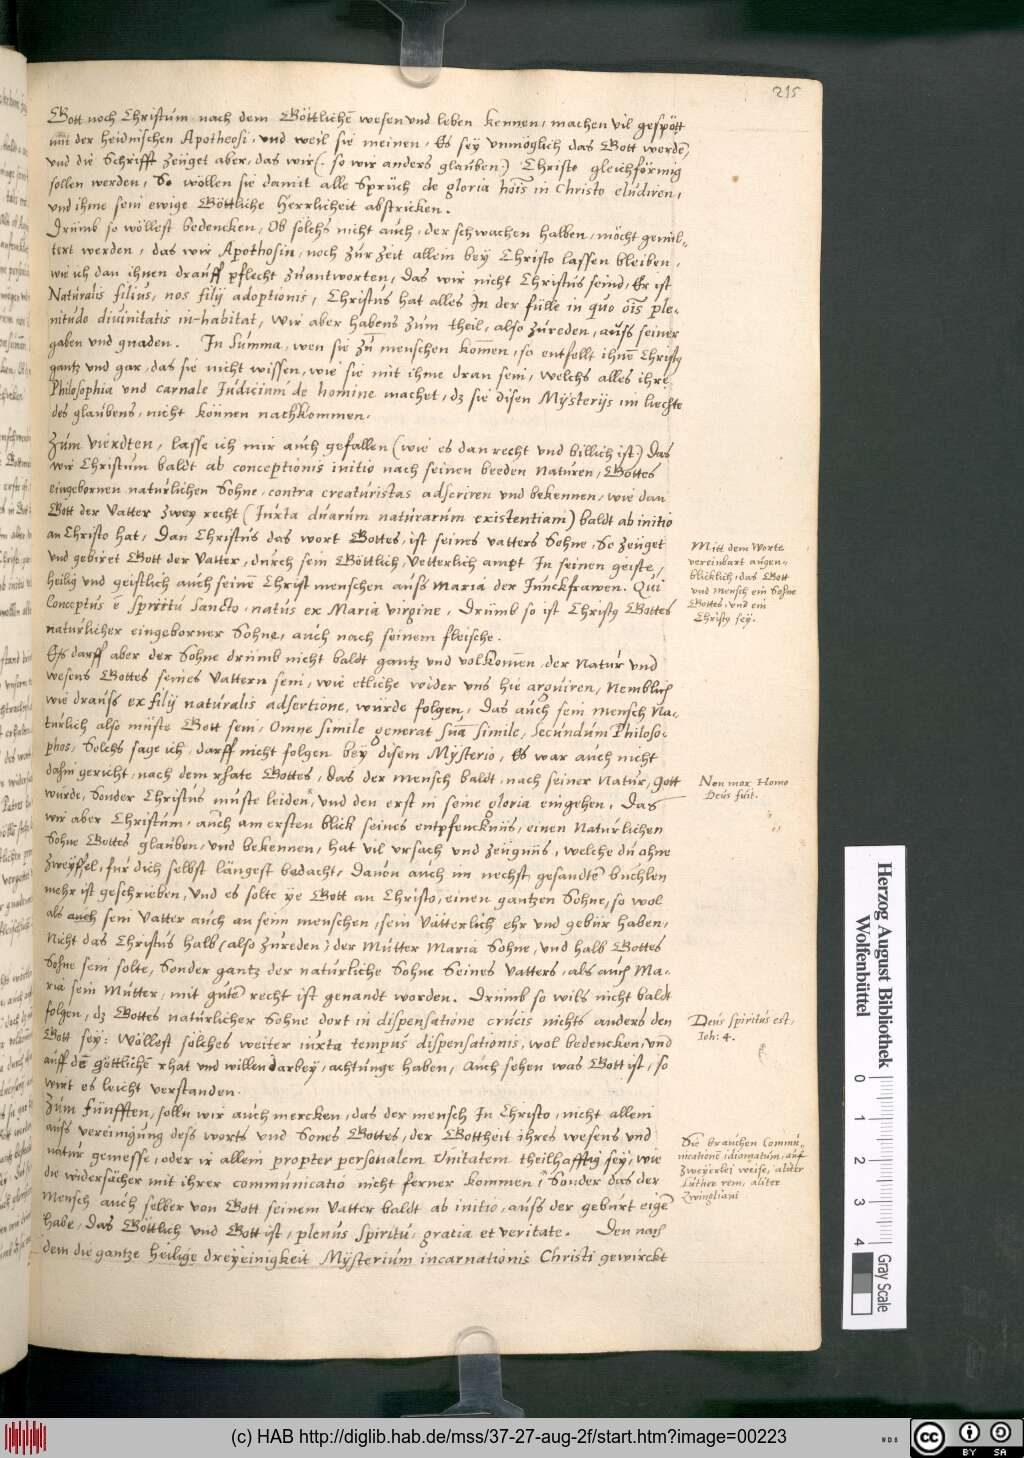 215
Gott noch Christum nach dem Göttlichē wesen und leben kennen, machen vil gespött
mit der heidnischen Apotheosi, und weil sie meinen, Es seÿ unmöglich das Gott werde,
und die Schrifft zeüget aber, das wir (so wir anders glauben) Christo gleichförmig
sollen werden, So wöllen sie damit alle Sprüch de gloria hōis in Christo eludiren,
und ihme sein ewige Göttliche herrlicheit abstricken.
Drümb so wöllest bedencken, Ob solchs nicht auch, der schwachen halben, möcht gemil-
tert werden, das wir Apothosin, noch zur zeit allein beÿ Christo lassen bleiben,
wie ich dan ihnen drauff pflecht zuantworten, Das wir nicht Christus seind, Er ist
Naturalis filius, nos filij adoptionis, Christus hat alles In der fülle in quo ōis ple-
nitudo divinitatis in-habitat, Wir aber habens zum theil, also zureden, auss seiner
gaben und gnaden. In Summa, wen sie zū menschen komēn, so entfellt ihnē Christg
gantz und gar, das sie nicht wissen, wie sie mit ihme dran sein, Welchs alles ihre
Philosophia und carnale Judicium de homine machet, dz sie disen Mÿsterijs im liechte
des glaubens, nicht können nachkommen.
Zum vierdten, lasse ich mir auch gefallen (wie es dan recht und billich ist) Das
wir Christum baldt ab conceptionis initio nach seinen beeden Naturen, Gottes
eingebornen naturlichen Sohne, contra creaturistas adscriren und bekennen, wie dan
Gott der Vatter zweÿ recht (Juxta duarum naturarum existentiam) baldt ab initio
an Christo hat, Dan Christus das wort Gottes, ist seines vatters Sohne, So zeüget
und gebiret Gott der Vatter, durch sein Göttlich, Vetterlich ampt In seinen geiste,
heilig und geistlich auch seinē Christ menschen auss Maria der Junckfrawen. Qui
Conceptus ē Spiritu Sancto, natus ex Maria virgine, Drümb so ist Christg Gottes
naturlicher eingeborner Sohne, auch nach seinem fleische.
Es darff aber der Sohne drümb nicht baldt gantz und volkomēn, der Natur und
wesens Gottes seines Vattern sein, wie etliche wider uns hie arguiren, Nemblich
wie drauss ex filij naturalis adsertione, würde folgen, Das auch sein mensch Na-
türlich also müste Gott sein, Omne simile generat suā simile, secundum Philoso-
phos, Solchs sage ich, darff nicht folgen beÿ disem Mÿsterio, Es war auch nicht
dahin gericht, nach dem rhate Gottes, das der mensch baldt, nach seiner Natur, Gott
würde, Sonder Christus muste leiden, und den erst in seine gloria eingehen, Das
wir aber Christum, auch am ersten blick seines entpfencknüs, einen Naturlichen
Sohne Gottes glauben, und bekennen, hat vil ursach und zeügnüs, welche du ohne
zweÿffel, für dich selbst längest bedacht, Davon auch im nechst gesandtē buchlen
mehr ist geschrieben, Und es solte ÿe Gott an Christo, einen gantzen Sohne, so wol
als auch sein Vatter auch an seim menschen, sein Vätterlich ehr und gebür haben,
Nicht das Christus halb (also zureden) der Mutter Maria Sohne, und halb Gottes
Sohne sein solte, Sonder gantz der natürliche Sohne Seines Vatters, als auch Ma-
ria sein Mutter, mit gutē recht ist genandt worden. Drümb so wils nicht baldt
folgen, dz Gottes natürlicher Sohne dort in dispensatione crucis nichts anders den
Gott seÿ: Wöllest solches weiter iuxta tempus dispensationis, wol bedencken, und
auff dē göttlichē rhat und willen darbeÿ, achtunge haben, Auch sehen was Gott ist, so
wirt es leicht verstanden.
Zum fünfften, solln wir auch mercken, das der mensch In Christo, nicht allein
auss vereinigung dess worts und Sones Gottes, der Gottheit ihres wesens und
natur gemesse, oder ir allein propter personalem Unitatem theilhafftig seÿ, wie
die widersächer mit ihrer communicatio nicht ferner kommen, Sonder das der
Mensch auch selber von Gott seinem Vatter baldt ab initio, auss der geburt eigē
habe, Das Göttlich und Gott ist, plenus spiritu, gratia et veritate. Den nach
dem die gantze heilige dreÿeinigkeit Mÿsterium incarnationis Christi gewirckt
Mitt dem Worte
vereinbart augen-
blicklich, das Gott
und mensch ein Sohne
Gottes, und ein
Christg seÿ.
Non mox Homo
Deus fuit.
Deus spiritus est,
Ioh: 4.
Sie brauchen Commu-
nicationē idiomatum, auf
zweÿerlei weise, aliter
Luther rem, aliter
Zwingliani
Herzog August Bibliothek
Wolfenbüttel
0 1 2 3 4
Gray Scale
(c) HAB http://diglib.hab.de/mss/37-27-aug-2f/start.htm?image=00223
WDB
cc BY SA